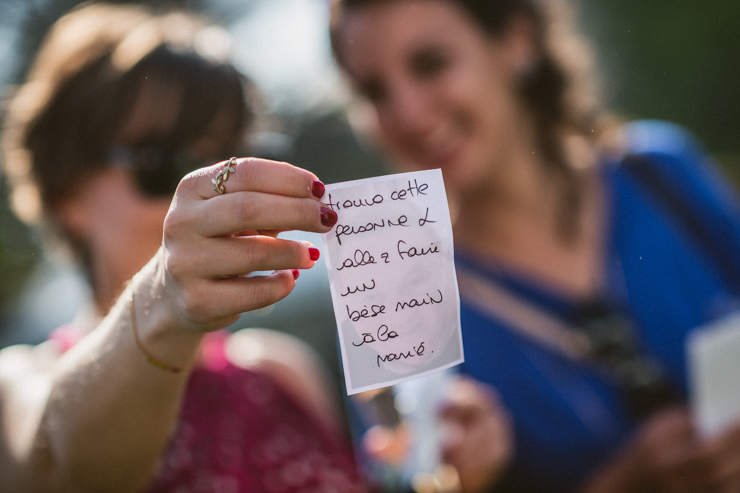 trouvo cette
personne &
allez faire
un
bèse main
à la
marié.